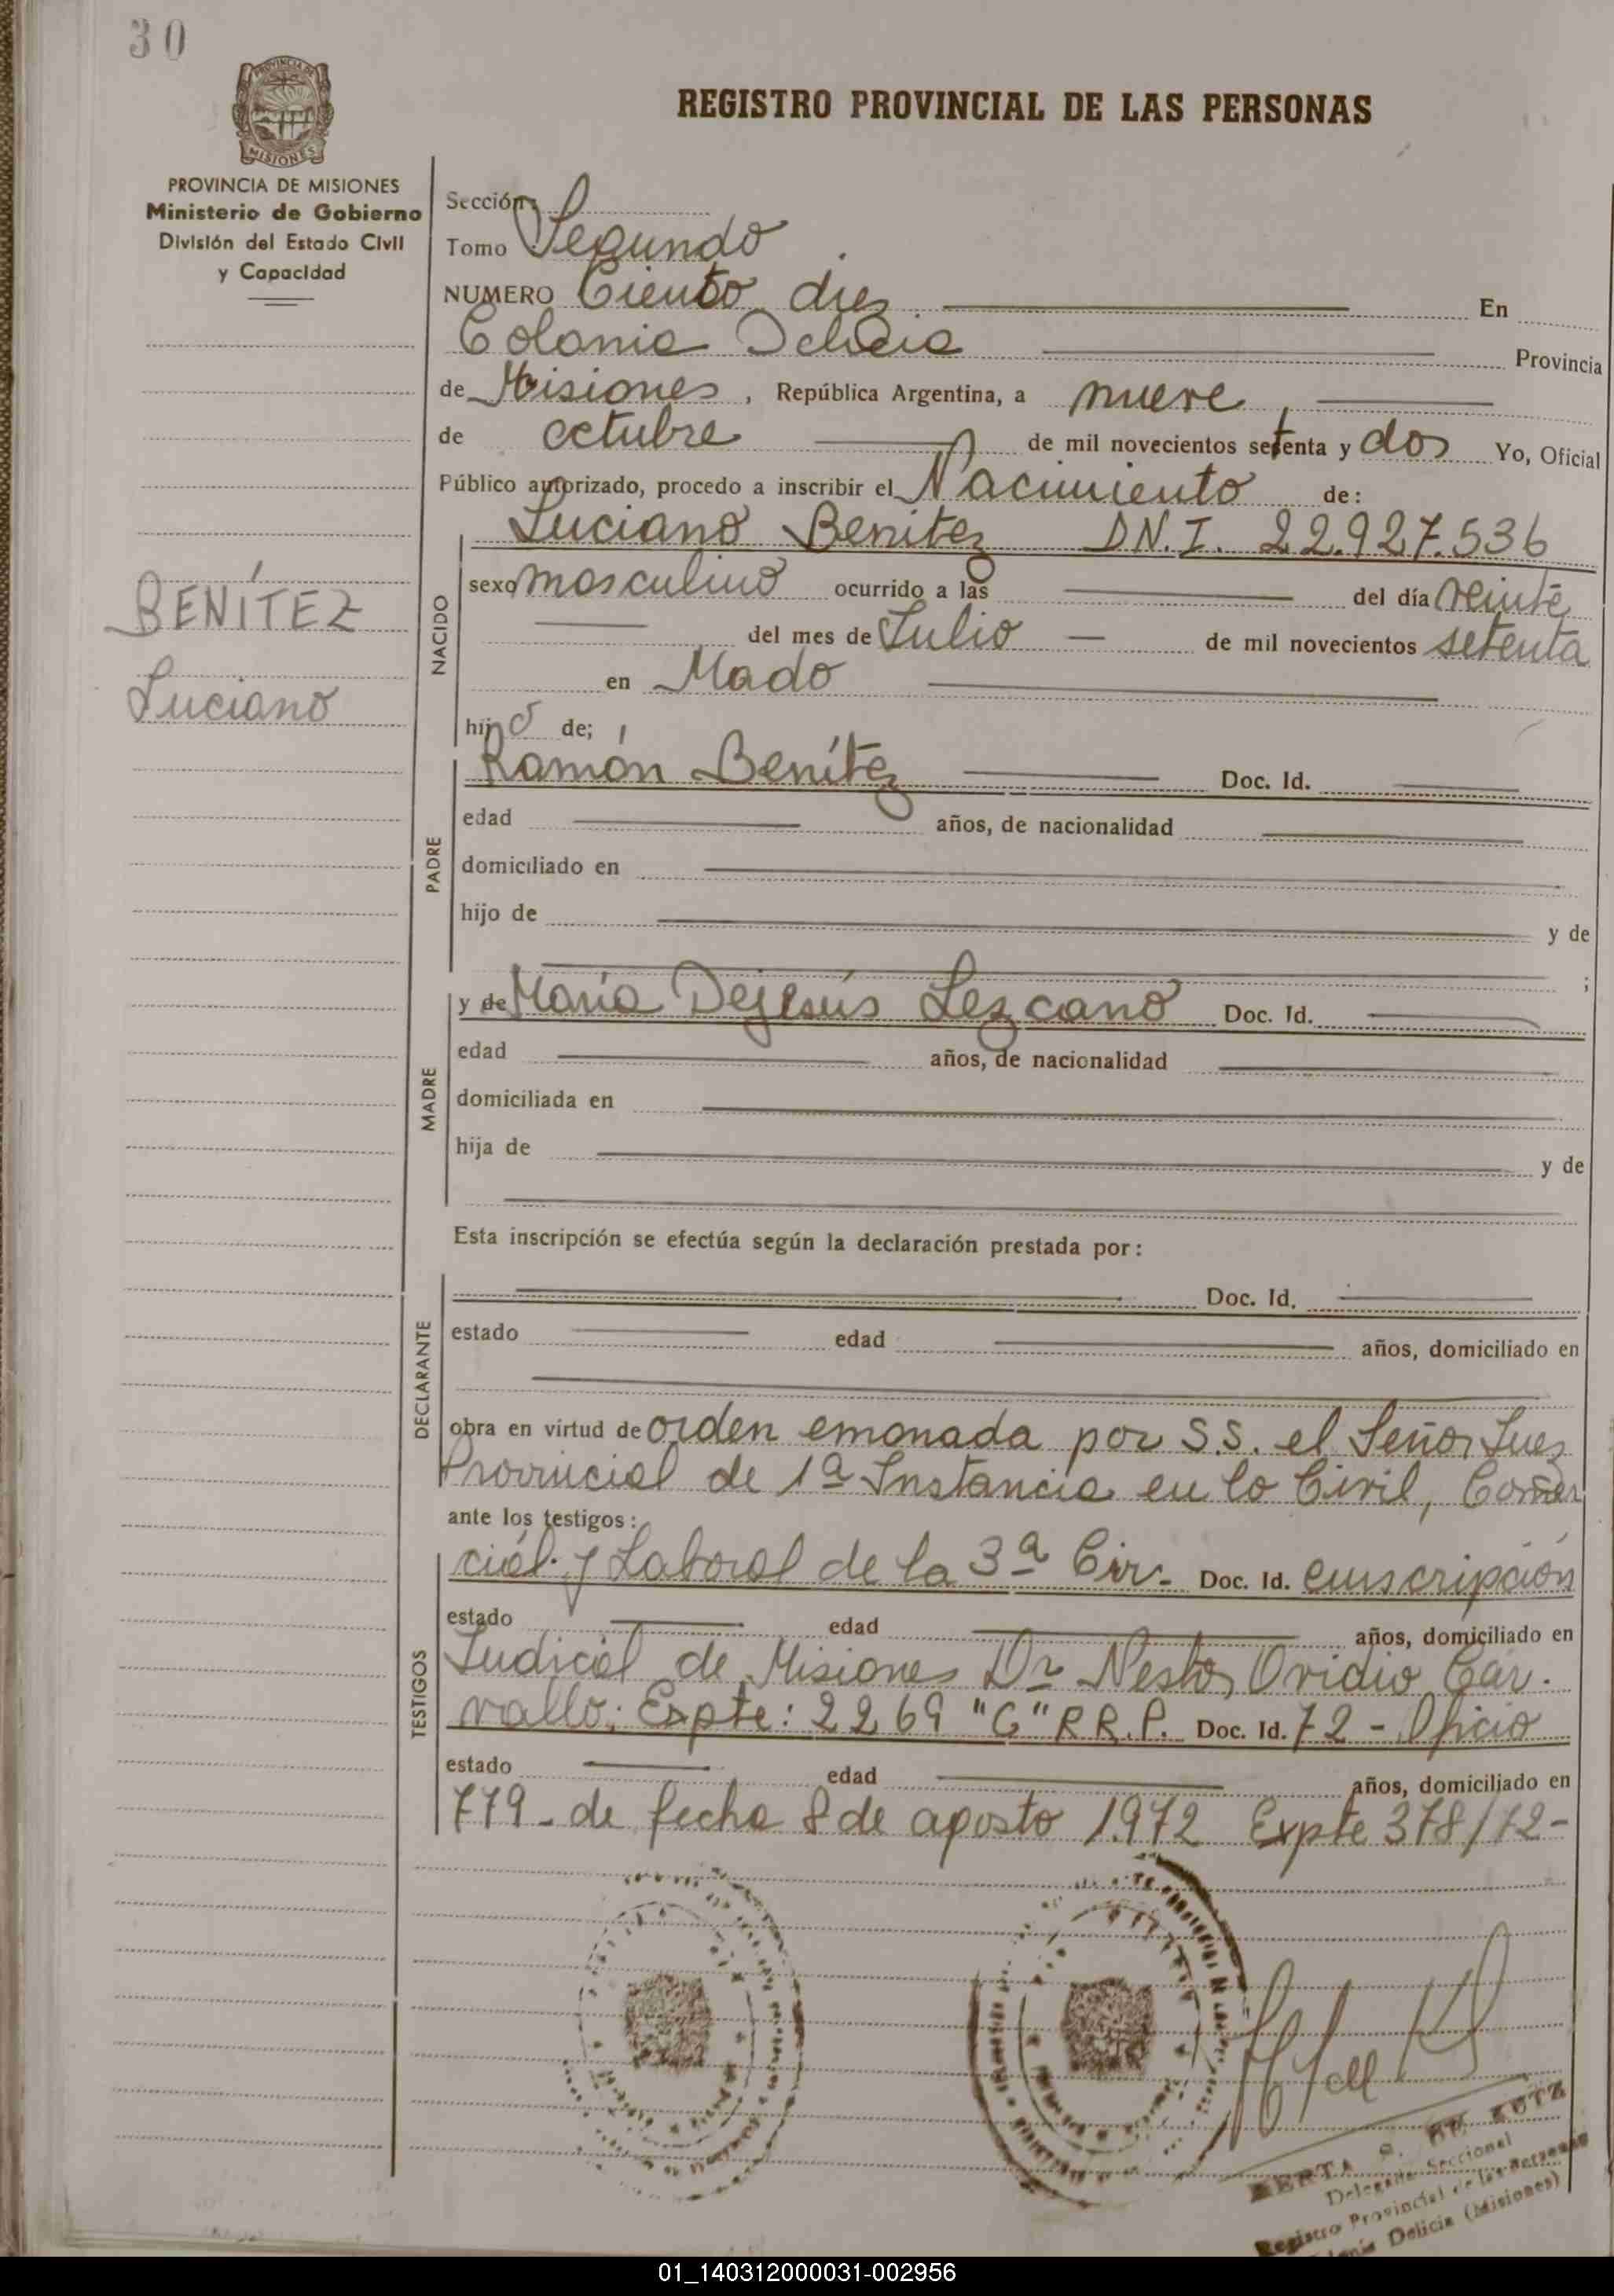 30
PROVINCIA DE MISIONES
REGISTRO PROVINCIAL DE LAS PERSONAS
PROVINCIA DE MISIONES
Ministerio de Gobierno
División del Estado Civil
y Capacidad
Sección
Tomo Segundo
NUMERO Ciento diez En
Colonia Delicia Provincia
de Misiones, República Argentina, a nueve,
de octubre de mil novecientos setenta y dos Yo, Oficial
Público autorizado, procedo a inscribir el Nacimiento de:
Luciano Benitez D.N.I. 22.927.536
NACIDO
sexo masculino ocurrido a las del día veinte
del mes de Julio de mil novecientos setenta
en Mado
hijo de;
BENÍTEZ
Luciano
PADRE
Ramón Benítez Doc. Id.
edad años, de nacionalidad
domiciliado en
hijo de y de
;
MADRE
y de María Dejesús Lezcano Doc. Id.
edad años, de nacionalidad
domiciliada en
hija de y de
Esta inscripción se efectúa según la declaración prestada por:
DECLARANTE
Doc. Id.
estado edad años, domiciliado en
obra en virtud de orden emanada por S.S. el Señor Juez
Provincial de 1ª Instancia en lo Civil, Comer
ante los testigos:
TESTIGOS
cial y Laboral de la 3ª Cir- Doc. Id. cunscripción
estado edad años, domiciliado en
Judicial de Misiones Dr Nestor Ovidio Car-
vallo; Expte: 2269 "C" R.R.P. Doc. Id. 72 - Oficio
estado edad años, domiciliado en
779- de fecha 8 de agosto 1972 Expte 378/72-
BERTA S. DE KUTZ
Delegada Seccional
Registro Provincial de las Personas
Colonia Delicia (Misiones)
01_140312000031-002956